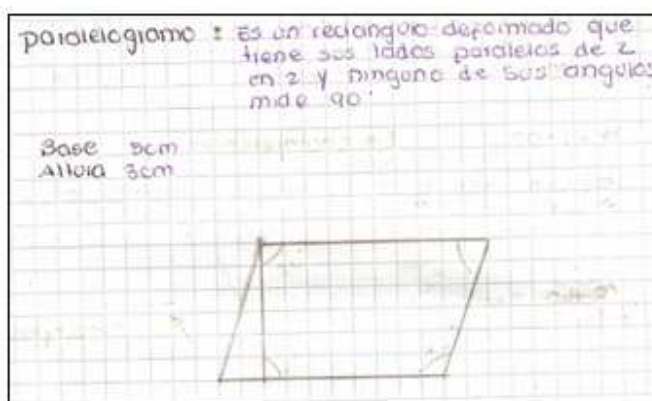 paralelogramo : Es un rectangulo deformado que
tiene sus lados paralelos de 2
en 2 y ninguno de sus angulos
mide 90°
Base 5cm
Altura 3cm